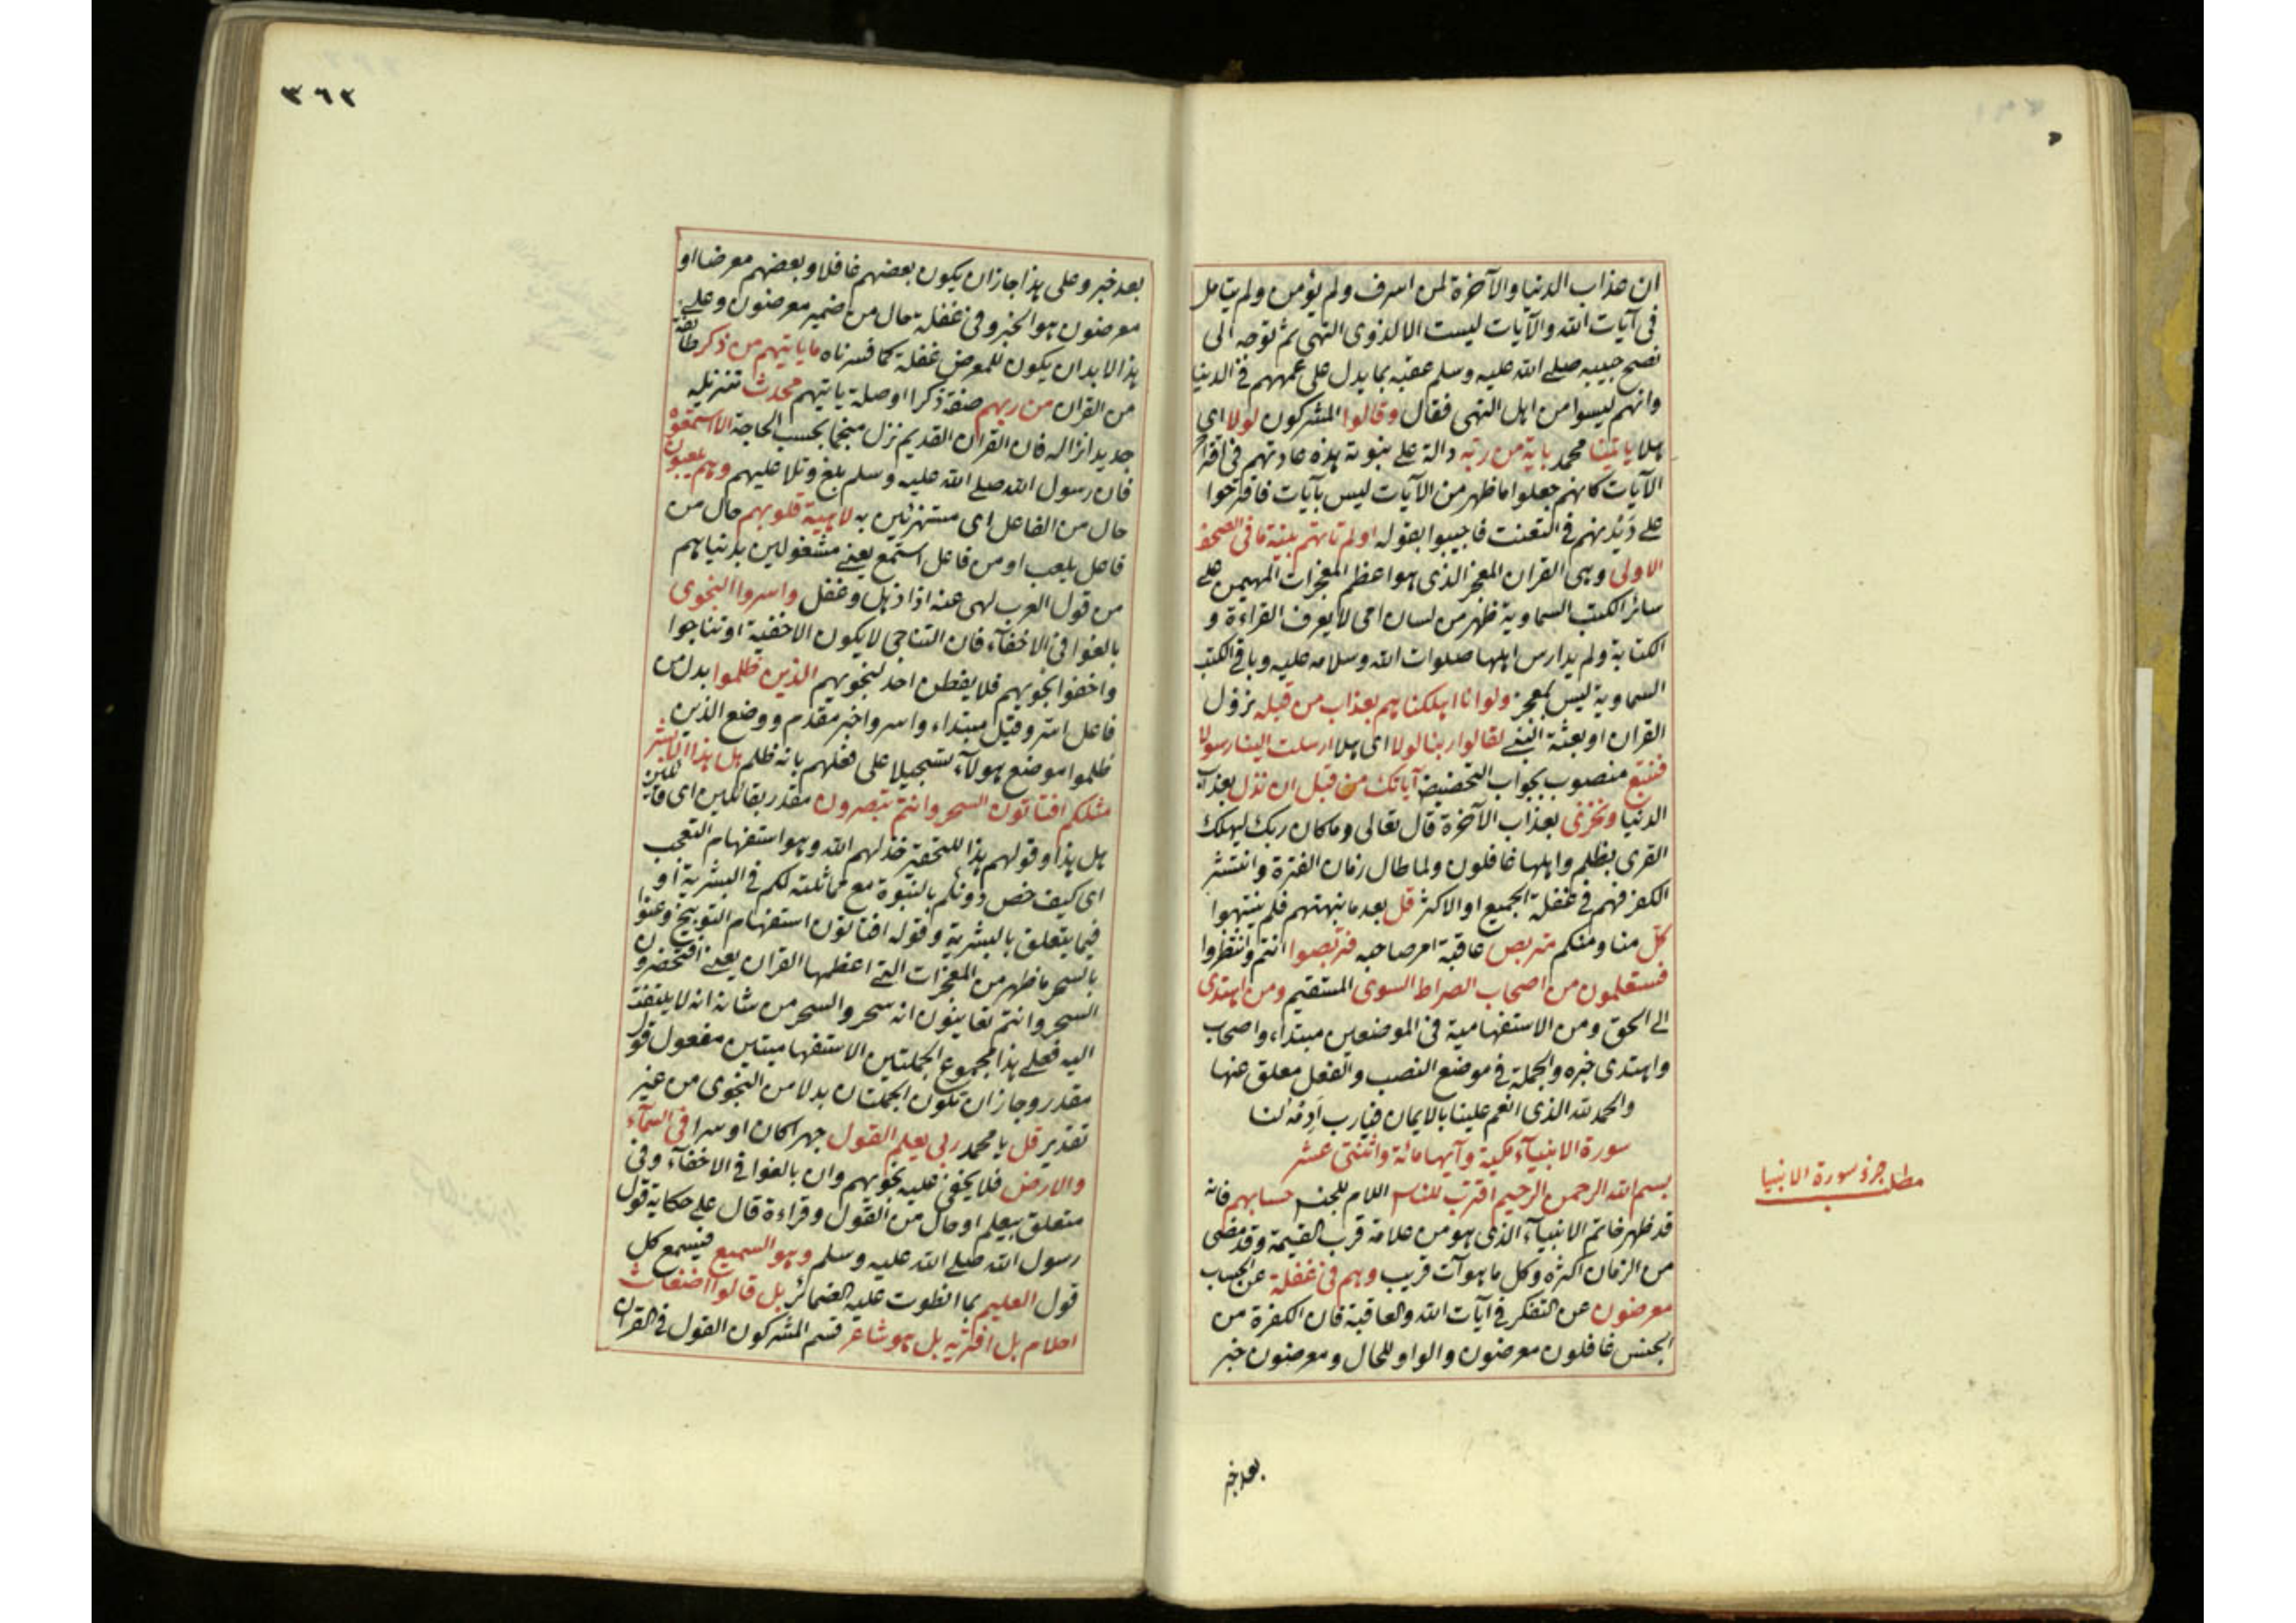 ان عذاب الدنيا والآخرة لمن اسرف ولم يؤمن ولم يتامل
فى آيات الله والآيات ليست الا لذوى النهى ثم توجه الى
نصح حبيبه صلى الله عليه وسلم عقبه بما يدل على عمههم فى الدنيا
وانهم ليسوا من اهل النهى فقال وقالوا المشركون لولا اى
هلا ياتينا محمد باية من ربه دالة على نبوته هذه عادتهم فى اقتراح
الآيات كانهم جعلوا ما ظهر من الآيات ليس بآيات فاقترحوا
على ديدنهم فى التعنت فاجيبوا بقوله اولم تاتهم بينة ما فى الصحف
الاولى وهى القران المعجز الذى هو اعظم المعجزات المهيمن على
سائر الكتب السماوية ظهر من لسان امى لا يعرف القراءة و
الكتابة ولم يدارس اهلها صلوات الله وسلامه عليه وباقى الكتب
السماوية ليس بمعجز ولو انا اهلكناهم بعذاب من قبله نزول
القران او بعثة النبى لقالوا ربنا لولا اى هلا ارسلت الينا رسولا
فنتبع منصوب بجواب التحضيض آياتك من قبل ان نذل بعذاب
الدنيا ونخزى بعذاب الآخرة قال تعالى وما كان ربك ليهلك
القرى بظلم واهلها غافلون ولما طال زمان الفترة وانتشر
الكفر فهم فى غفلة الجميع او الاكثر قل بعد ما نبهتهم فلم ينتهوا
كل منا ومنكم متربص عاقبة امر صاحبه فتربصوا انتم وانتظروا
فستعلمون من اصحاب الصراط السوى المستقيم ومن اهتدى
الى الحق ومن الاستفهامية فى الموضعين مبتداء واصحاب
واهتدى خبره والجملة فى موضع النصب والفعل معلق عنها
والحمد لله الذى انعم علينا بالايمان فيارب ادمه لنا
سورة الانبيآء مكية وآيها مائة واثنتى عشر
بسم الله الرحمن الرحيم اقترب للناس اللام للجنس حسابهم فانه
قد ظهر خاتم الانبيآء الذى هو من علامة قرب القيمة وقد مضى
من الزمان اكثره وكل ما هو آت قريب وهم فى غفلة عن الحساب
معرضون عن التفكر فى آيات الله والعاقبة فان الكفرة من
الجنس غافلون معرضون والواو للحال ومعرضون خبر
بعد خبر
سورة الانبيا
٣٦٢
بعد خبر وعلى هذا جاز ان يكون بعضهم غافلا وبعضهم معرضا او
معرضون هو الخبر وفى غفلة حال من ضمير معرضون وعلى
هذا لابد ان يكون للمعرض غفلة كما فسرناه ما ياتيهم من ذكر طائفة
من القران من ربهم صفة ذكر او صلة ياتيهم محدث تنزيله
جديد انزاله فان القران القديم نزل منجما بحسب الحاجة الا استمعوه
فان رسول الله صلى الله عليه وسلم بلغ وتلا عليهم وهم يلعبون
حال من الفاعل اى مستهزئين به لاهية قلوبهم حال من
فاعل يلعب او من فاعل استمع يعنى مشغولين بدنياهم
من قول العرب لهى عنه اذا ذهل وغفل واسروا النجوى
بالغوا فى الاخفآء فان التناجى لا يكون الا خفية او تناجوا
واخفوا نجويهم فلا يفطن احد لنجويهم الذين ظلموا بدل من
فاعل اسر وقيل مبتداء واسروا خبر مقدم ووضع الذين
ظلموا موضع هولآء تسجيلا على فعلهم بانه ظلم هل هذا الا بشر
مثلكم افتاتون السحر وانتم تبصرون مقدر بقائلين اى قائلين
هل هذا وقولهم هذا للتحقير خذلهم الله وهو استفهام التعجب
اى كيف خص دونكم بالنبوة مع مماثلته لكم فى البشرية او
فيما يتعلق بالبشرية وقوله افتاتون استفهام التوبيخ وعنوا
بالسحر ما ظهر من المعجزات التى اعظمها القران يعنى افتحضرون
السحر وانتم تعاينون انه سحر والسحر من شانه انه لا يلتفت
اليه فعلى هذا مجموع الجملتين الاستفهاميتين مفعول قول
مقدر وجاز ان تكون الجملتان بدلا من النجوى من غير
تقدير قل يا محمد ربى يعلم القول جهرا كان او سرا فى السمآء
والارض فلا يخفى عليه نجويهم وان بالغوا فى الاخفآء وفى
متعلق بيعلم او حال من القول وقراءة قال على حكاية قول
رسول الله صلى الله عليه وسلم وهو السميع فيسمع كل
قول العليم بما انطوت عليه الضمائر بل قالوا اضغاث
احلام بل افتريه بل هو شاعر قسم المشركون القول فى القران